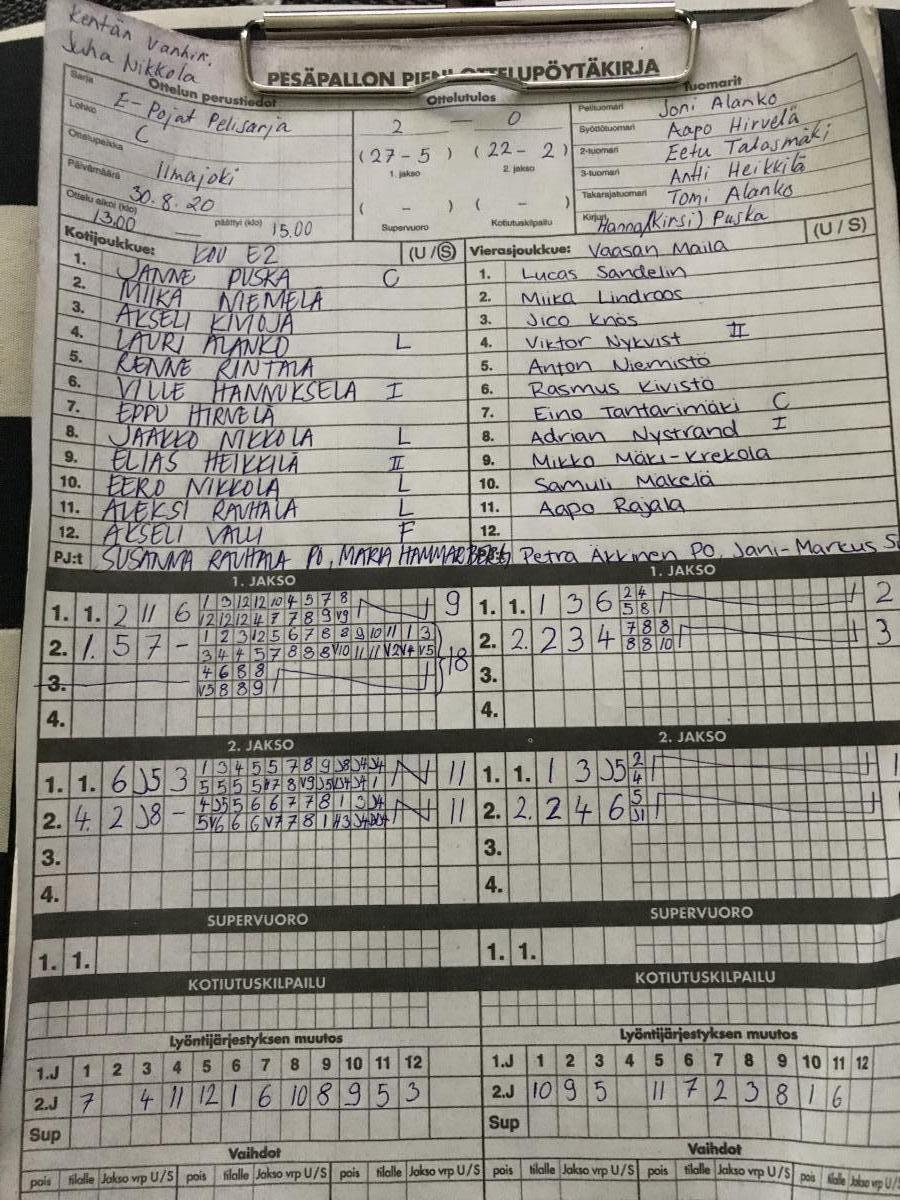 Kentän vanhin.
Juha Nikkola
PESÄPALLON PIENI OTTELUPÖYTÄKIRJA
Ottelun perustiedot
Sarja E-Pojat Pelisarja
Lohko C
Ottelupaikka Ilmajoki
Päivämäärä 30.8.20
Ottelu alkoi (klo) 13.00 päättyi (klo) 15.00
Ottelutulos
2 — 0
(27 - 5) (22 - 2)
1. jakso 2. jakso
( - ) ( - )
Supervuoro Kotiutuskilpailu
Tuomarit
Pelituomari Joni Alanko
Syöttötuomari Aapo Hirvelä
2-tuomari Eetu Talasmäki
3-tuomari Antti Heikkilä
Takarajatuomari Tomi Alanko
Kirjuri Hanna/(Kirsi) Puska
Kotijoukkue: KOU E2 (U / S)
1. JANNE PUSKA C
2. MIIKA NIEMELÄ
3. AKSELI KIVIOJA
4. LAURI ALANKO L
5. RENNE RINTALA
6. VILLE HANNUKSELA I
7. EPPU HIRVELÄ
8. JAAKKO NIKKOLA L
9. ELIAS HEIKKILÄ II
10. EERO NIKKOLA L
11. ALEKSI RAUHALA L
12. AKSELI VALLI F
PJ:t SUSANNA RAUHALA PO, MARIA HAMMARBERG
Vierasjoukkue: Vaasan Maila (U / S)
1. Lucas Sandelin
2. Miika Lindroos
3. Jico Knös
4. Viktor Nykvist II
5. Anton Niemistö
6. Rasmus Kivistö
7. Eino Tantarimäki C
8. Adrian Nystrand I
9. Mikko Mäki-Krekola
10. Samuli Mäkelä
11. Aapo Rajala
12.
Petra Äkkinen PO, Jani-Markus
1. JAKSO
1. 1. 2 11 6
1 3 12 12 10 4 5 7 8
12 12 12 4 7 7 8 9 V9
9
2. 1. 5 7 -
1 2 3 12 5 6 7 8 8 9 10 11 1 3
3 4 4 5 7 8 8 8 V10 11 11 V2 V4 V5
18
3.
4 6 8 8
V5 8 8 9
4.
1. JAKSO
1. 1. 1 3 6
2 4
5 8
2
2. 2. 2 3 4
7 8 8
8 8 10
3
3.
4.
2. JAKSO
1. 1. 6 J5 3
11
2. 4. 2 J8 -
11
3.
4.
2. JAKSO
1. 1. 1 3 J5
2
4
1
2. 2. 2 4 6
5
J1
3.
4.
SUPERVUORO
1. 1.
SUPERVUORO
1. 1.
KOTIUTUSKILPAILU
KOTIUTUSKILPAILU
Lyöntijärjestyksen muutos
1.J 1 2 3 4 5 6 7 8 9 10 11 12
2.J 7 4 11 12 1 6 10 8 9 5 3
Sup
Lyöntijärjestyksen muutos
1.J 1 2 3 4 5 6 7 8 9 10 11 12
2.J 10 9 5 11 7 2 3 8 1 6
Sup
Vaihdot
pois tilalle Jakso vrp U/S pois tilalle Jakso vrp U/S pois tilalle Jakso vrp U/S
Vaihdot
pois tilalle Jakso vrp U/S pois tilalle Jakso vrp U/S pois tilalle Jakso vrp U/S